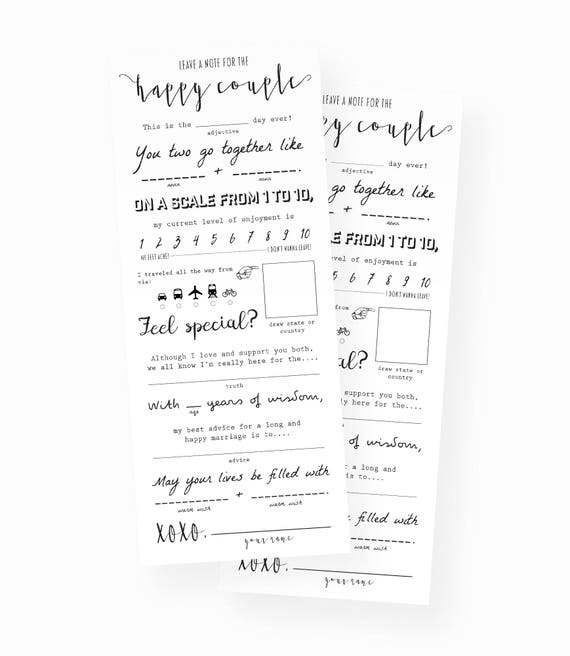 LEAVE A NOTE FOR THE
happy couple
This is the __________ day ever!
adjective
You two go together like
________ + ________.
noun noun
ON A SCALE FROM 1 TO 10,
my current level of enjoyment is
1 2 3 4 5 6 7 8 9 10
MY FEET ACHE! I DON'T WANNA LEAVE!
I traveled all the way from
via:
draw state or
country
Feel special?
Although I love and support you both,
we all know I'm really here for the....
truth
With __ years of wisdom,
age
my best advice for a long and
happy marriage is to....
advice
May your lives be filled with
__________ + __________.
warm wish warm wish
XOXO,
your name
LEAVE A NOTE FOR THE
py couple
day ever!
adjective
go together like
+ ________.
noun
FROM 1 TO 10,
level of enjoyment is
4 5 6 7 8 9 10
I DON'T WANNA LEAVE!
from
draw state or
country
al?
support you both,
ly here for the....
of wisdom,
a long and
is to....
be filled with
+ __________.
warm wish
XOXO,
your name